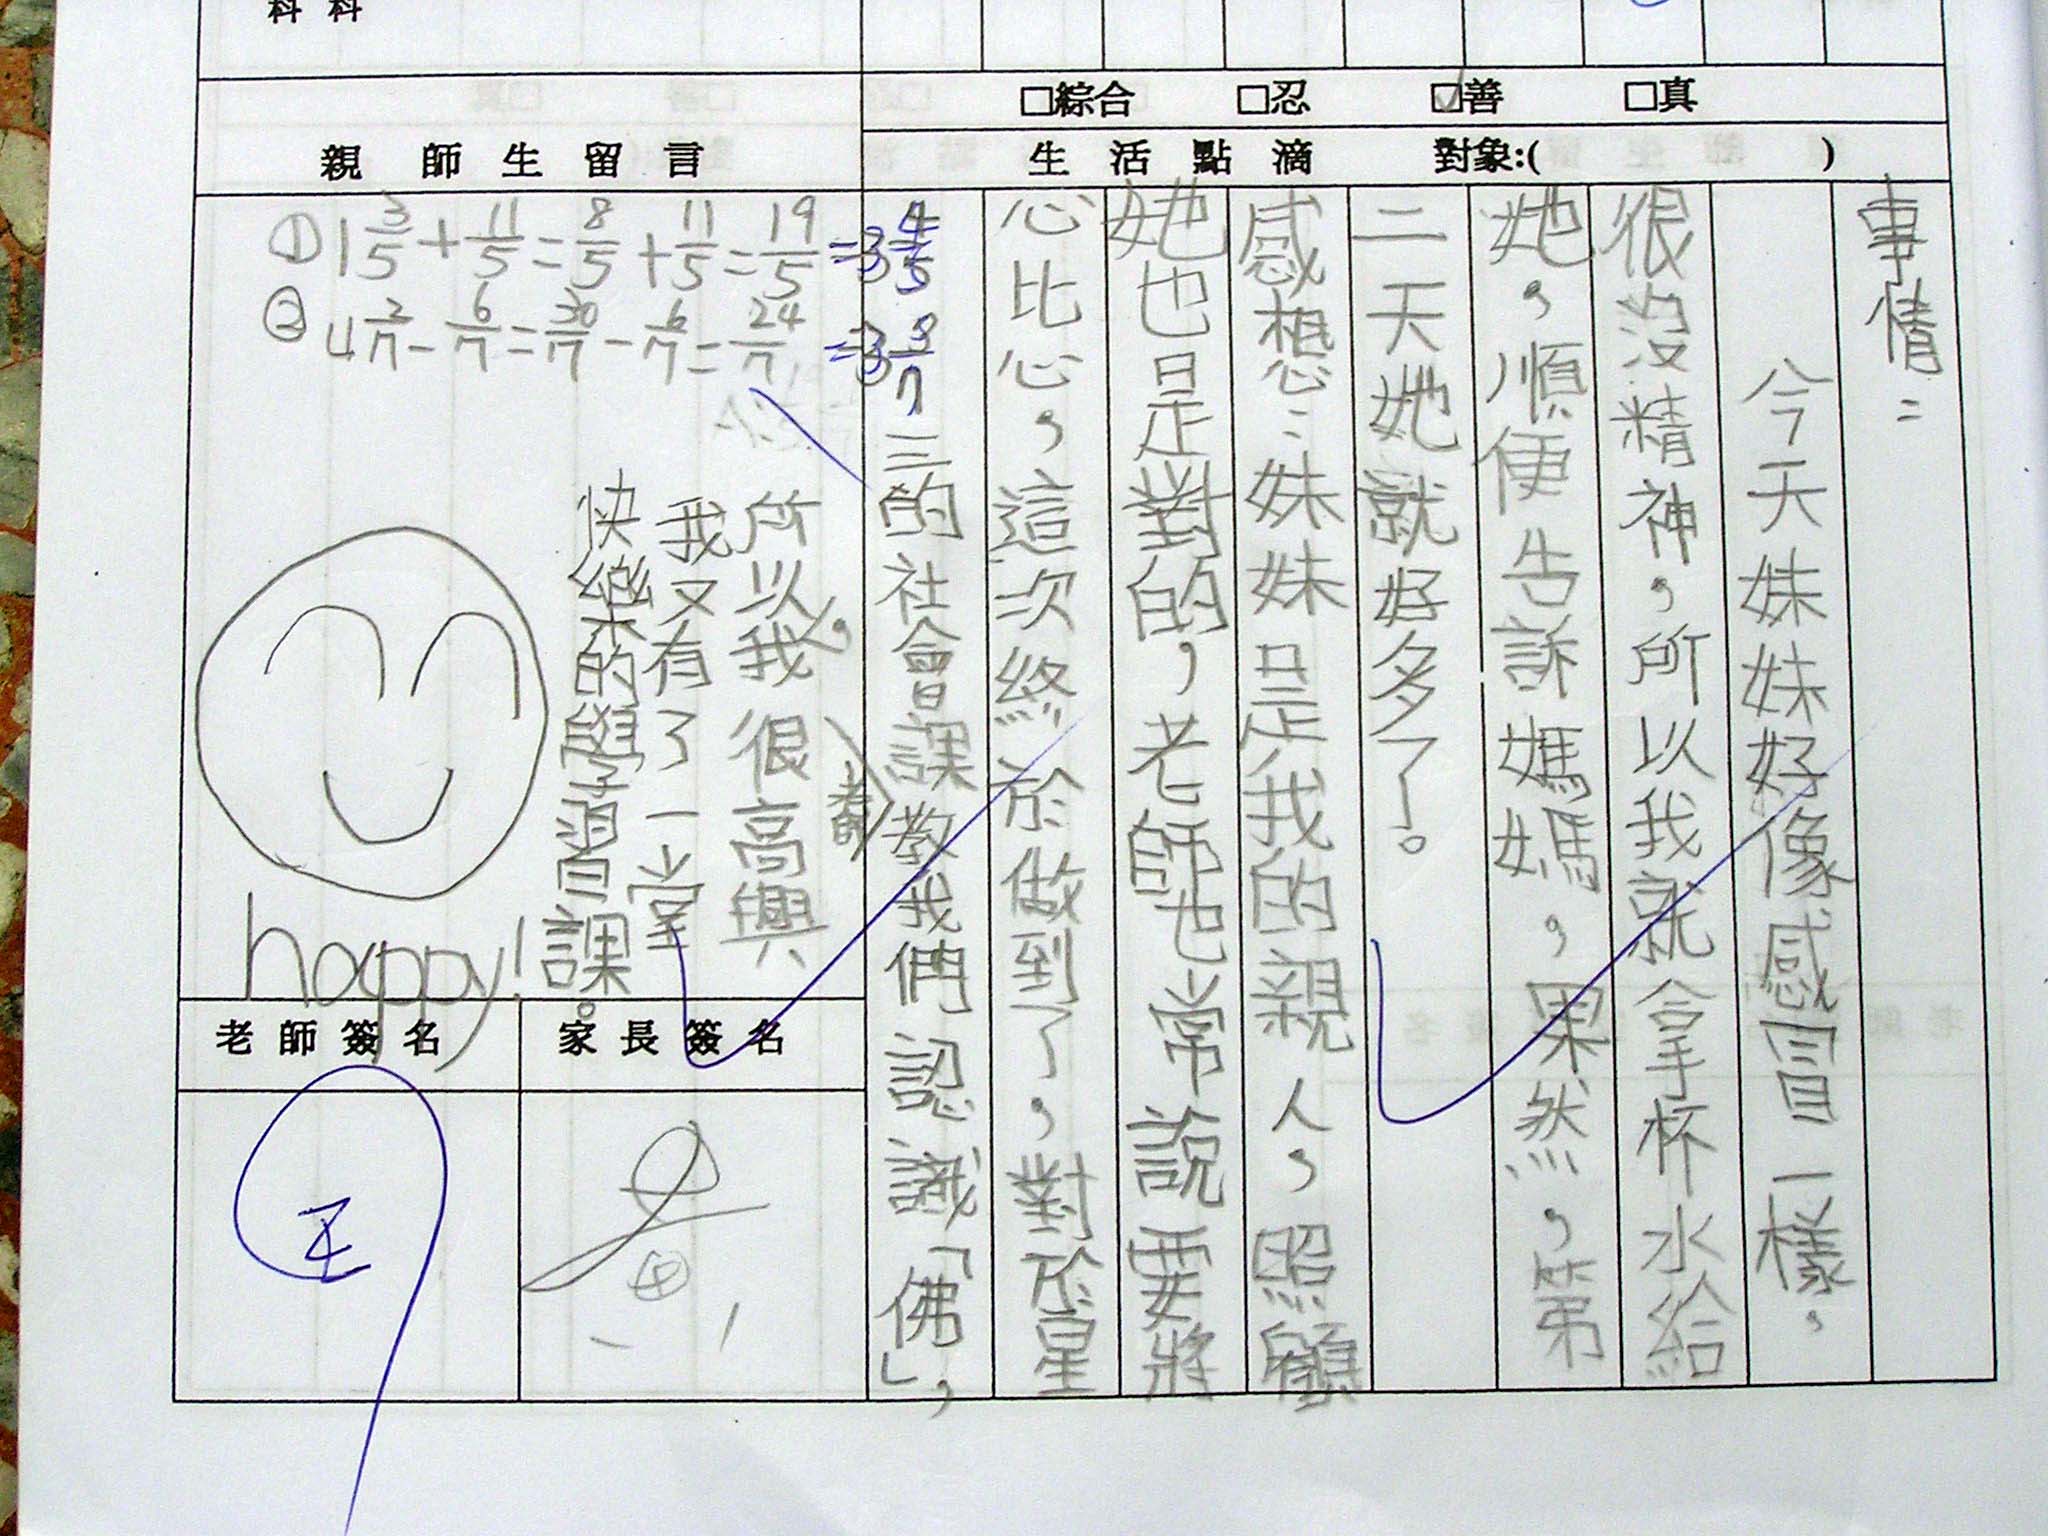 科 科
□綜合 □忍 ☑善 □真
生活點滴 對象:( )
事情：
今天妹妹好像感冒一樣，
很沒精神，所以我就拿杯水給
她，順便告訴媽媽，果然，第
二天她就好多了。
感想：妹妹是我的親人，照顧
她也是對的，老師也常說要將
心比心，這次終於做到了，對於星
三的社會課教我們認識「佛」，
老師
所以我很高興
我又有了一堂
快樂的學習課。
親師生留言
① 1 3/5 + 11/5 = 8/5 + 11/5 = 19/5 = 3 4/5
② 4 2/7 - 6/7 = 30/7 - 6/7 = 24/7 = 3 3/7
happy!
老師簽名
家長簽名
王